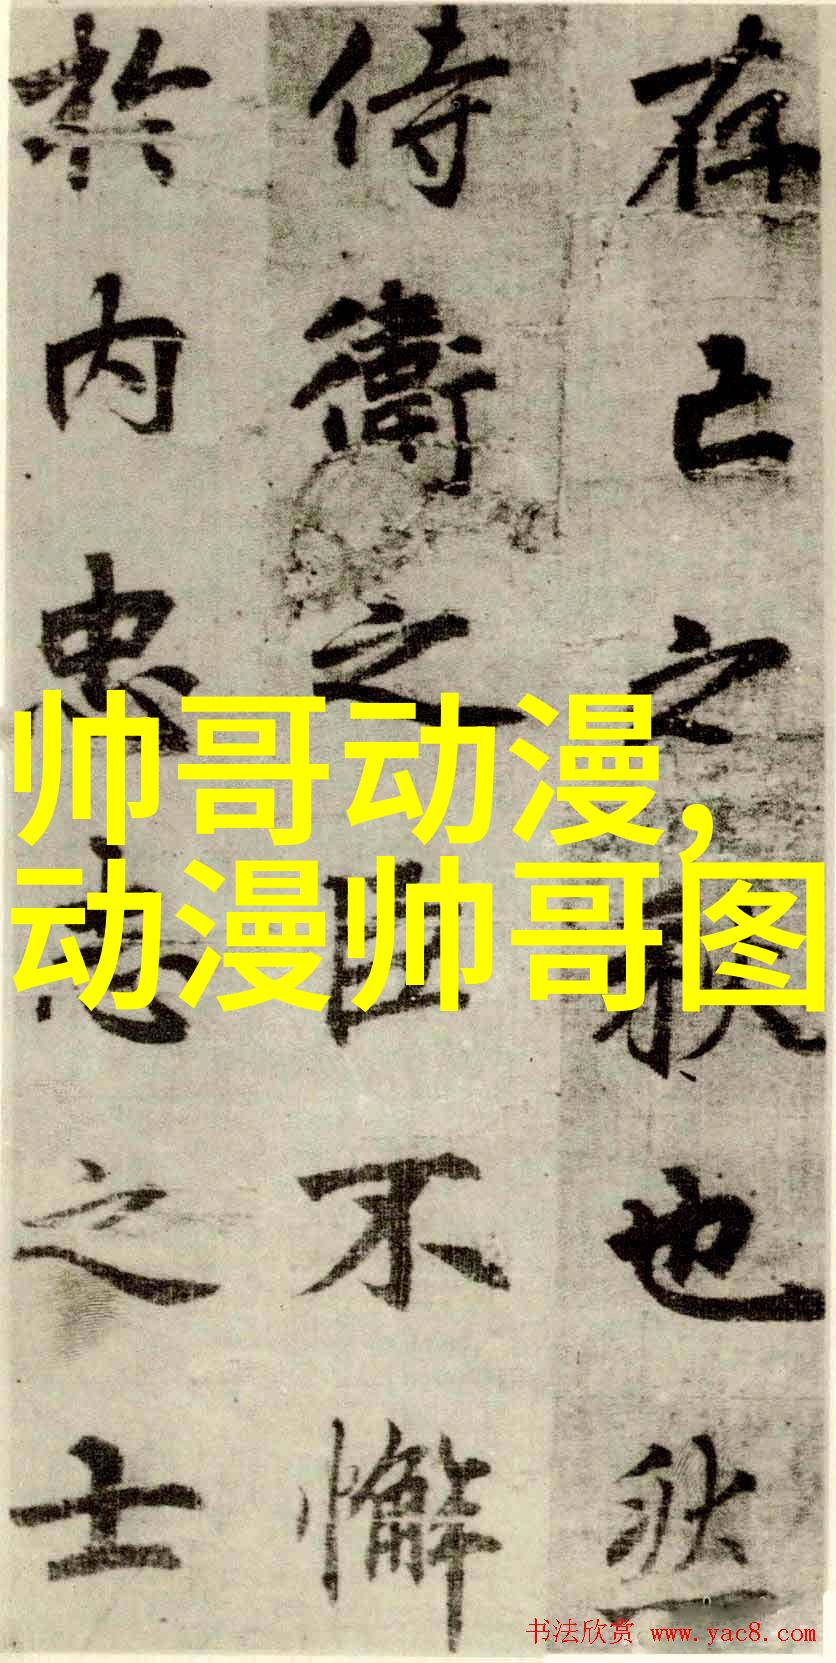 存亡之秋也然
侍衛之臣不懈
於内忠志之士
帅哥动漫，
动漫帅哥图
书法欣赏 www.yac8.com